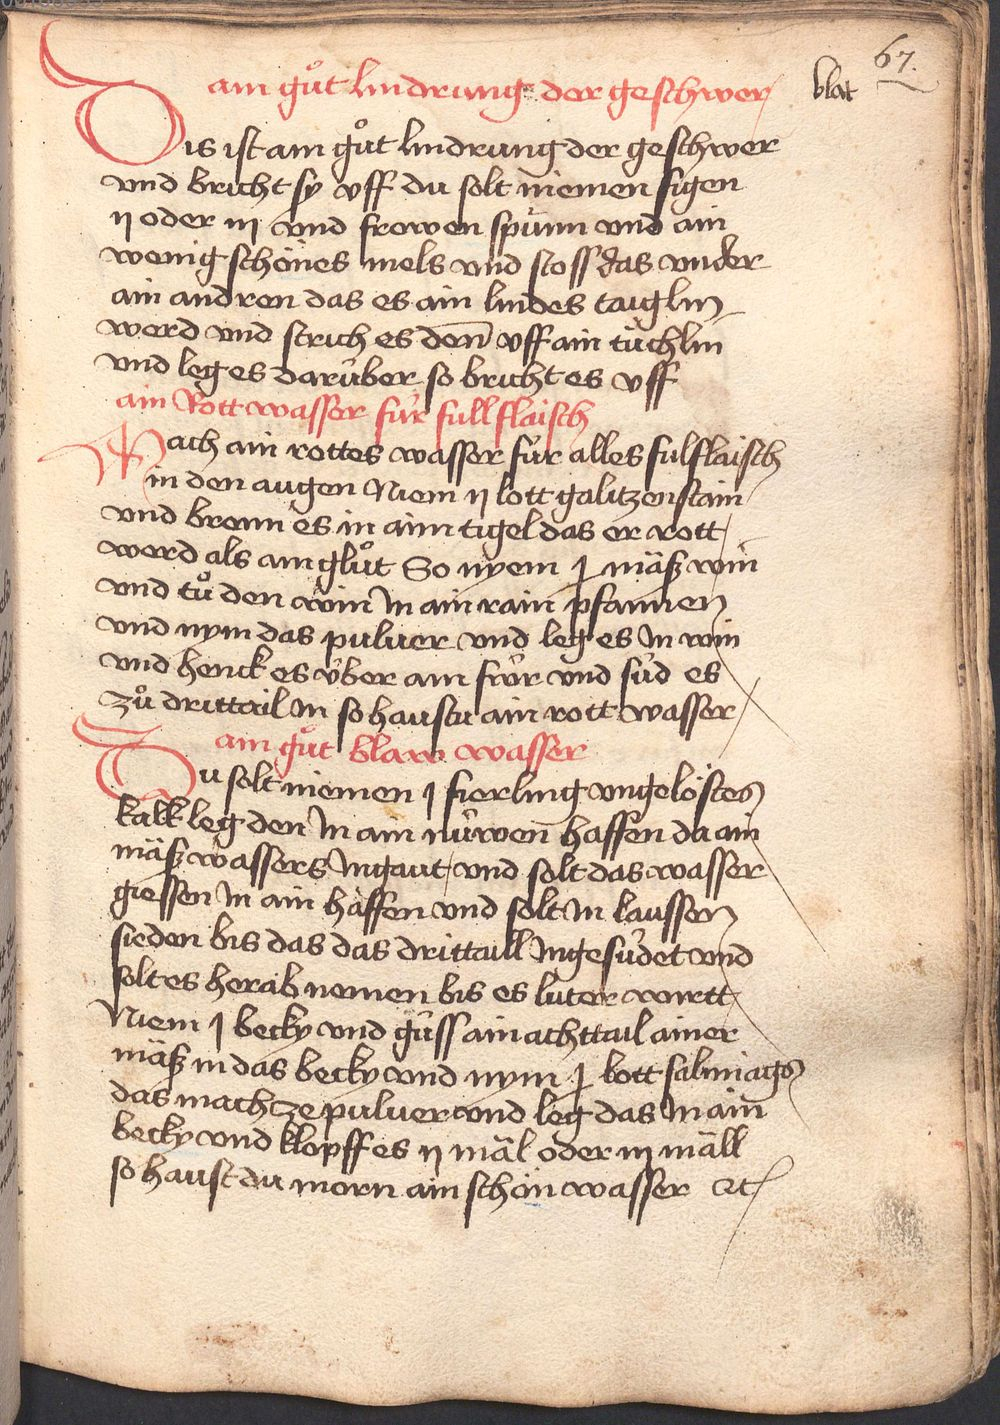 67.
blat
ain gůt lindrung der geschwer
Dis ist ain gůt lindrung der geschwer
vnd bricht sy vff du solt niemen figen
ij oder iij vnd frowen spünn vnd ain
wenig schönes mels vnd stoss das vnder
ain andren das es ain lindes taiglin
werd vnd strich es den̄ vff ain tüchlin
vnd leg es darüber so bricht es vff
ain Rott wasser für full flaisch
Mach ain rottes wasser für alles fulflaisch
in den augen Niem ij lott galitzenstain
vnd brenn es in ainn tigel das er rott
werd als ain glůt So nyem j mäß win
vnd tů den win In ain rain pfannen
vnd nym das puluer vnd leg es In win
vnd henck es über ain fwr vnd süd es
zů drittail In so haustu ain rott wasser
ain gůt blaw wasser
Du solt niemen j fierling vngelöstes
kalk leg den In ain nüwen haffen da ain
mäß wassers Ingaut vnd solt das wasser
giessen In ain haffen vnd solt In laussen
sieden bis das das drittaill Ingesüdet vnd
solt es herab nemen bis es luter wurtt
Niem j becky vnd güss ain achttail ainer
mäß in das becky vnd nym j lott salmiags
das mach ze puluer vnd leg das In ain
becky vnd klopff es ij mäl oder iij mäll
so haust du morn ain schön wasser ꝛc